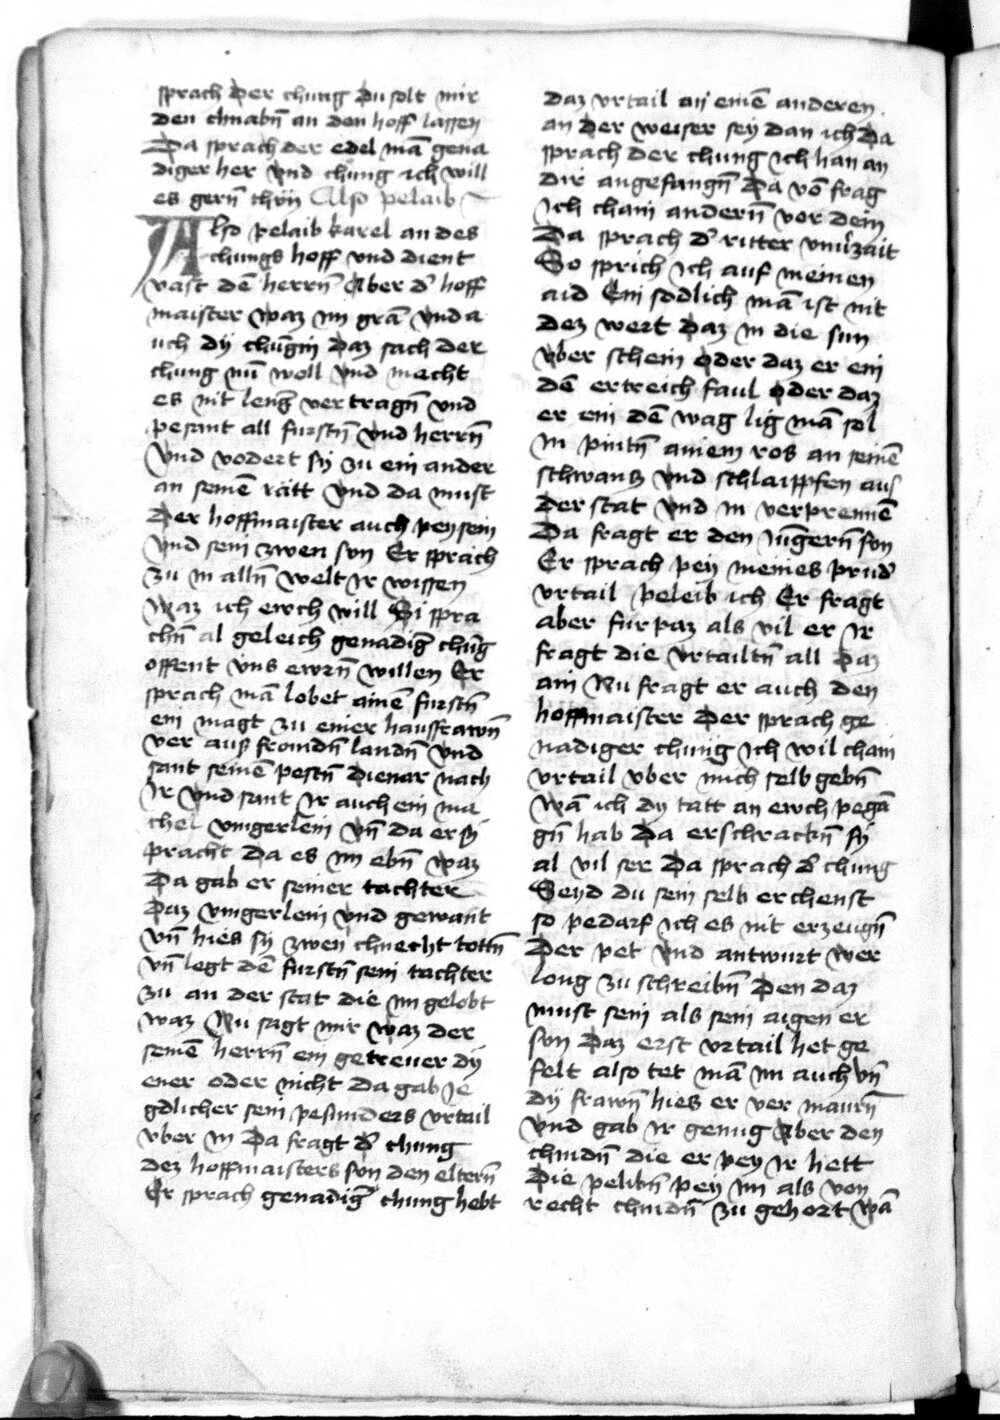 sprach der chung du solt mir
den chnabn̄ an den hoff lassen
Da sprach der edel mā gena
diger her vnd chung ich will
es gern̄ thün Also pelaib
Also pelaib karel an des
chungs hoff vnd dient
vast dē herrn̄ Aber d' hoff
maister waz im gram vnd a
uch dy chūgin daz sach der
chung nū woll vnd macht
es nit leng' vertragn̄ vnd
pesant all furstn̄ vnd herrn̄
vnd vodert sy zu ein ander
an seinē rätt vnd da must
der hoffmaister auch pey sein
vnd sein zwen sun Er sprach
zu in alln̄ welt ir wissen
waz ich ewch will Si spra
chn̄ al geleich genadig' chūg
offent vns ewrn̄ willen Er
sprach mā lobet ainē furstn̄
ein magt zu einer hausfrawn̄
ver aus fromdn̄ landn̄ vnd
sant seinē pestn̄ dienar nach
ir vnd sant ir auch ein ma
chel vingerlein vn̄ da er sy
pracht da es im ebn̄ waz
Da gab er seiner tachter
daz vingerlein vnd gewant
vn̄ hies sy zwen chnecht tottn̄
vn̄ legt dē furstn̄ sein tachter
zu an der stat die im gelobt
waz Nu sagt mir waz der
seinē herrn̄ ein getrewer dy
ener oder nicht da gab ie
gdlicher sein pesunders vrtail
vber in Da fragt d' chung
dez hoffmaisters sun den eltern̄
Er sprach genadig' chung hebt
daz vrtail an einē anderen
an der weiser sey dan ich da
sprach der chung ich han an
dir angefangn̄ Da vō frag
ich chain andern̄ vor dein
Da sprach d' ritter vnuerzait
So sprich ich auf meinen
aid Ein sodlich mā ist nit
dez wert daz in die sun
vber schein oder daz er ein
dē ertreich faul oder daz
er ein dē wag lig mā sol
in pintn̄ ainem ros an seinē
schwantz vnd schlaippfen aus
der stat vnd in verprennē
Da fragt er den iūgern̄ sun
Er sprach pey meines prud'
vrtail peleib ich Er fragt
aber furpaz als vil er ir
fragt die vrtailtn̄ all daz
ain Nu fragt er auch den
hoffmaister Der sprach ge
nadiger chung ich wil chain
vrtail vber mich selb gebn̄
wā ich dy tatt an ewch pegā
gn̄ hab Da erschrackn̄ sy
al vil ser Da sprach d' chung
Seyd du sein selb erchenst
so pedarf ich es nit erzeugn̄
Der pet vnd antwurt wer
long zu schreibn̄ Den daz
must sein als sein aigen er
sun daz erst vrtail het ge
felt also tet mā im auch vn̄
dy frawn̄ hies er ver maurn̄
vnd gab ir genug Aber den
chindn̄ die er pey ir hett
Die pelibn̄ pey im als von
recht chindn̄ zu gehort wā